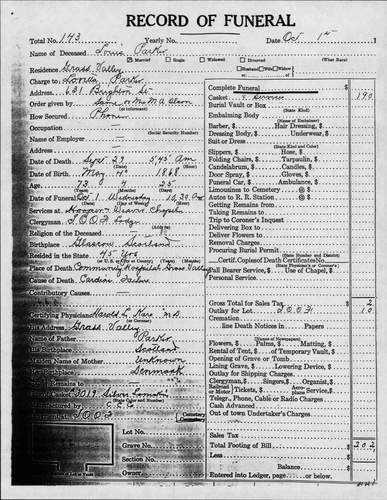 RECORD OF FUNERAL
Total No. 143 Yearly No. Date Oct 1st
Name of Deceased Louis Parker
Married Single Widowed Divorced (What Race)
Residence Grass Valley Husband Wife Widow
Charge to Loretta Parker or
Address 631 Brighton St.
Order given by Same or Mrs M A
How Secured Phone (or informant)
Occupation (Social Security Number)
Name of Employer
Address
Date of Death Sept 29 5:45 am
Date of Birth May 4 1868
Age 73 4 25
(Years) (Months) (Days)
Date of Funeral Oct 1 Wednesday 10:30 am
(Date) (Day of Week) (Hour)
Services at Hooper & Weaver Chapel
Clergyman I.O.O.F. Lodge
(Address)
Religion of the Deceased
Birthplace Glasgow Scotland
Resided in the State 45 yrs
Place of Death Community Hospital Grass Valley
Cause of Death Cardiac Failure
Contributory Causes
Certifying Physician Harold
His Address Grass Valley
Name of Father Parker
His Birthplace Scotland
Name of Mother Unknown
Her Birthplace Denmark
Remains to
I.O.O.F. Cemetery
Lot No.
Grave No.
Section No.
Owner
Complete Funeral
Casket 190
Burial Vault or Box
(State Kind)
Embalming Body
(Name of Embalmer)
Barber, $ Hair Dressing, $
Dressing Body, $ Underwear, $
Suit or Dress
(State Kind and Color)
Slippers, $ Hose, $
Folding Chairs, $ Tarpaulin, $
Candelabrum, $ Candles, $
Door Spray, $ Gloves, $
Funeral Car, $ Ambulance, $
Limousines to Cemetery @ $
Autos to R. R. Station @ $
Getting Remains from
Taking Remains to
Trip to Coroner's Inquest
Delivering Box to
Deliver Flowers to
Removal Charges
Procuring Burial Permit
(State Number and District)
Certif. Copies of Death Certificates No.
Pall Bearer Service, $ Use of Chapel, $
Personal Service
Gross Total for Sales Tax 2
Outlay for Lot I.O.O.F. 10
Cremation
line Death Notices in Papers
(Name of Newspapers)
Flowers, $ Palms, $ Matting, $
Rental of Tent, $ of Temporary Vault, $
Opening of Grave or Tomb
Lining Grave, $ Lowering Device, $
Outlay for Shipping Charges
Clergyman, $ Singers, $ Organist, $
Telegr., Phone, Cable or Radio Charges
Cash Advanced
Out of town Undertaker's Charges
Sales Tax
Total Footing of Bill 202
Less
Balance
Entered into Ledger, page or below